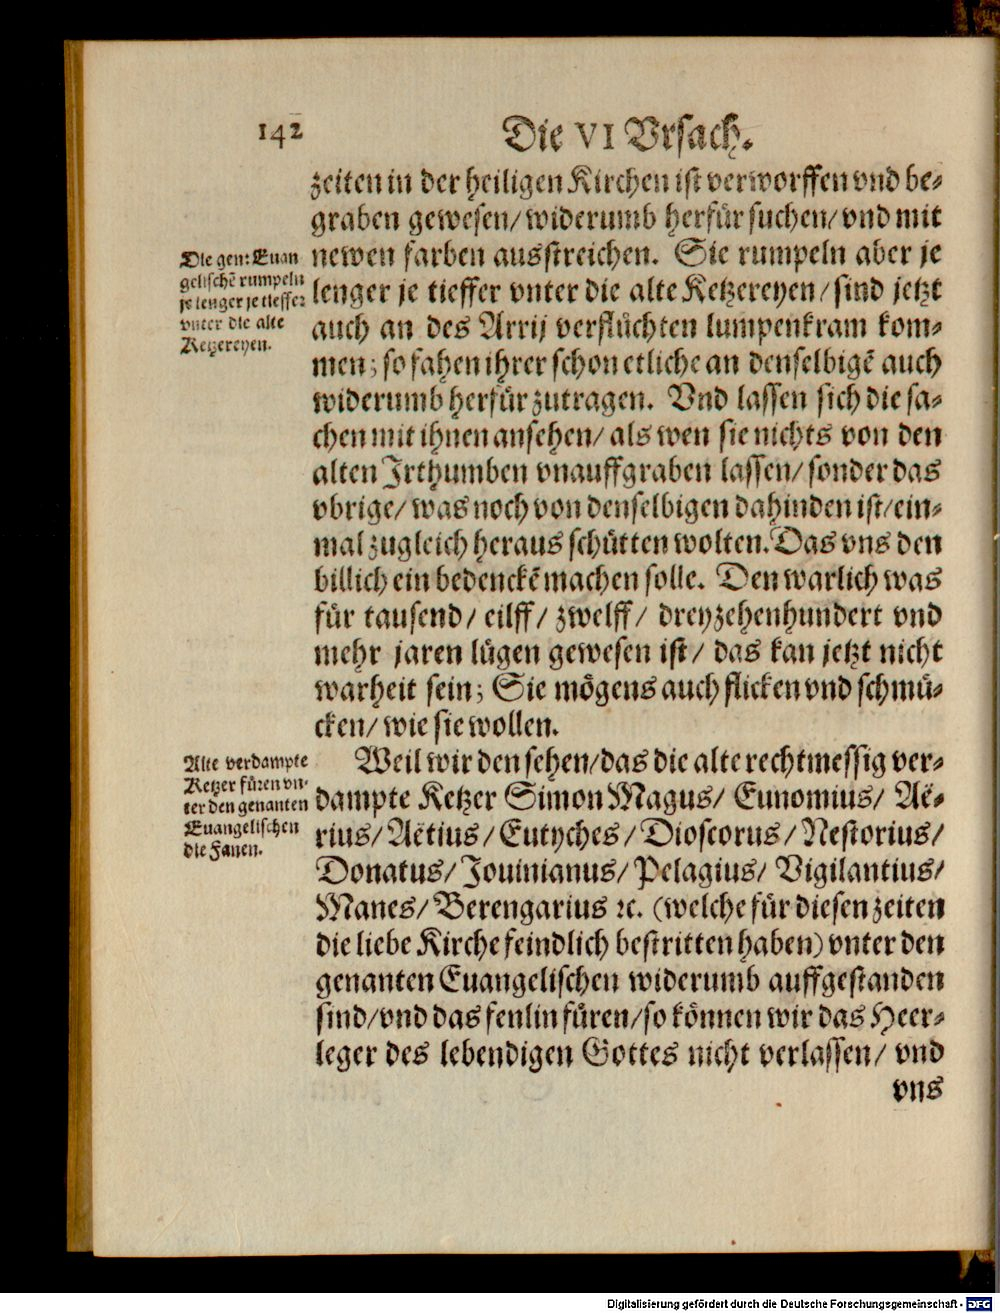 142
Die VI Vrsach.
zeiten in der heiligen Kirchen ist verworffen vnd be-
graben gewesen/ widerumb herfür suchen/ vnd mit
newen farben ausstreichen. Sie rumpeln aber je
lenger je tieffer vnter die alte Ketzereyen/ sind jetzt
auch an des Arrij verflüchten lumpenkram kom-
men; so fahen ihrer schon etliche an denselbigē auch
widerumb herfür zutragen. Vnd lassen sich die sa-
chen mit ihnen ansehen/ als wen sie nichts von den
alten Irthumben vnauffgraben lassen/ sonder das
vbrige/ was noch von denselbigen dahinden ist/ ein-
mal zugleich heraus schütten wolten. Das vns den
billich ein bedenckē machen solle. Den warlich was
für tausend/ eilff/ zwelff/ dreyzehenhundert vnd
mehr jaren lügen gewesen ist/ das kan jetzt nicht
warheit sein; Sie mögens auch flicken vnd schmü-
cken/ wie sie wollen.
Die gen: Euan
gelischē rumpeln
je lenger je tieffer
vnter die alte
Ketzereyen.
Weil wir den sehen/ das die alte rechtmessig ver-
dampte Ketzer Simon Magus/ Eunomius/ Aë-
rius/ Aëtius/ Eutyches/ Dioscorus/ Nestorius/
Donatus/ Jouinianus/ Pelagius/ Vigilantius/
Manes/ Berengarius ꝛc. (welche für diesen zeiten
die liebe Kirche feindlich bestritten haben) vnter den
genanten Euangelischen widerumb auffgestanden
sind/ vnd das fenlin füren/ so können wir das Heer-
leger des lebendigen Gottes nicht verlassen/ vnd
vns
Alte verdampte
Ketzer füren vn-
ter den genanten
Euangelischen
die Fanen.
Digitalisierung gefördert durch die Deutsche Forschungsgemeinschaft - DFG